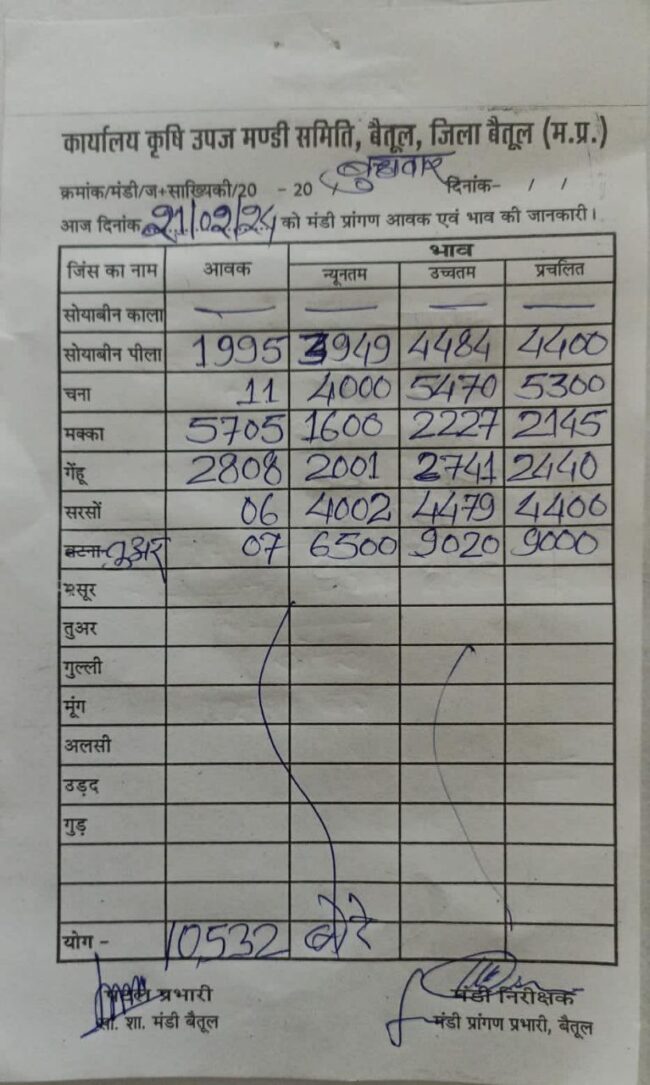 कार्यालय कृषि उपज मण्डी समिति, बैतूल, जिला बैतूल (म.प्र.)
क्रमांक/मंडी/ज+सांख्यिकी/20 - 20 बुधवार दिनांक- / /
आज दिनांक 21/02/24 को मंडी प्रांगण आवक एवं भाव की जानकारी।
जिंस का नाम आवक भाव
न्यूनतम उच्चतम प्रचलित
सोयाबीन काला — — — —
सोयाबीन पीला 1995 3949 4484 4400
चना 11 4000 5470 5300
मक्का 5705 1600 2227 2145
गेंहू 2808 2001 2741 2440
सरसों 06 4002 4479 4400
बटना तुअर 07 6500 9020 9000
मसूर
तुअर
गुल्ली
मूंग
अलसी
उड़द
गुड़
योग - 10,532 बोरे
प्रभारी मंडी निरीक्षक
सां. शा. मंडी बैतूल मंडी प्रांगण प्रभारी, बैतूल